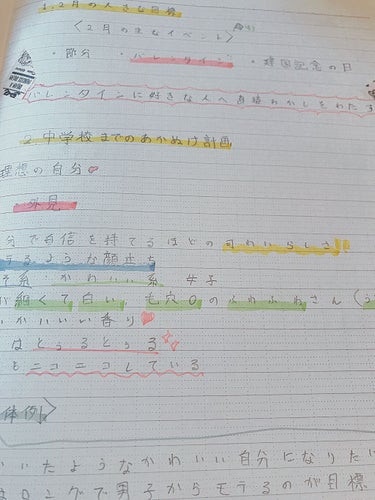 1. 2月の大きな目標
〈2月の主なイベント〉
・節分 ・バレンタイン ・建国記念の日
バレンタインに好きな人へ直接おかしをわたす
2 中学校までのあかぬけ計画
理想の自分
外見
分で自信を持てるほどのかわいらしさ!
るような顔立ち
系:かわいい系 女子
が細くて白い、毛穴0のふわふわさん(
いかいいい香り
はとぅるとぅる
もニコニコしている
体例
いたようなかわいい自分になりたい
で男子からモテるのが目標